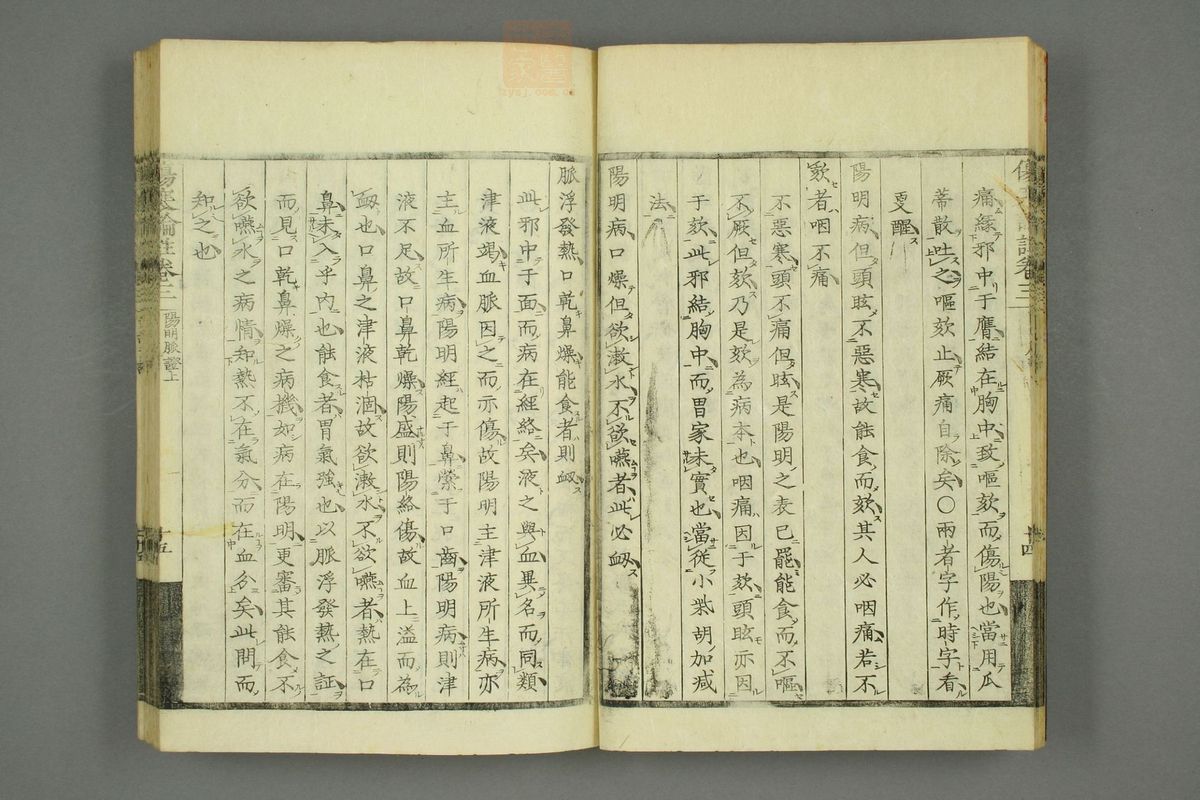 痛緩邪中于膺結在胸中致嘔欬而傷陽也當用瓜
蒂散吐之嘔欬止厥痛自除矣〇兩者字作時字看
更醒
陽明病但頭眩不惡寒故能食而欬其人必咽痛若不
欬者咽不痛
不惡寒頭不痛但眩是陽明之表已罷能食而不嘔
不厥但欬乃是欬為病本也咽痛因于欬頭眩亦因
于欬此邪結胸中而胃家未實也當從小柴胡加減
法
陽明病口燥但欲漱水不欲嚥者此必衂
脈浮發熱口乾鼻燥能食者則衂
此邪中于面而病在經絡矣液之與血異名而同類
津液竭血脈因之而亦傷故陽明主津液所生病亦
主血所生病陽明經起于鼻縈于口齒陽明病則津
液不足故口鼻乾燥陽盛則陽絡傷故血上溢而為
衂也口鼻之津液枯涸故欲漱水不欲嚥者熱在口
鼻未入乎內也能食者胃氣強也以脈浮發熱之証
而見口乾鼻燥之病機如病在陽明更審其能食不
欲嚥水之病情知熱不在氣分而在血分矣此問而
知之也
傷寒論註卷三
陽明脈證上
十五
十四